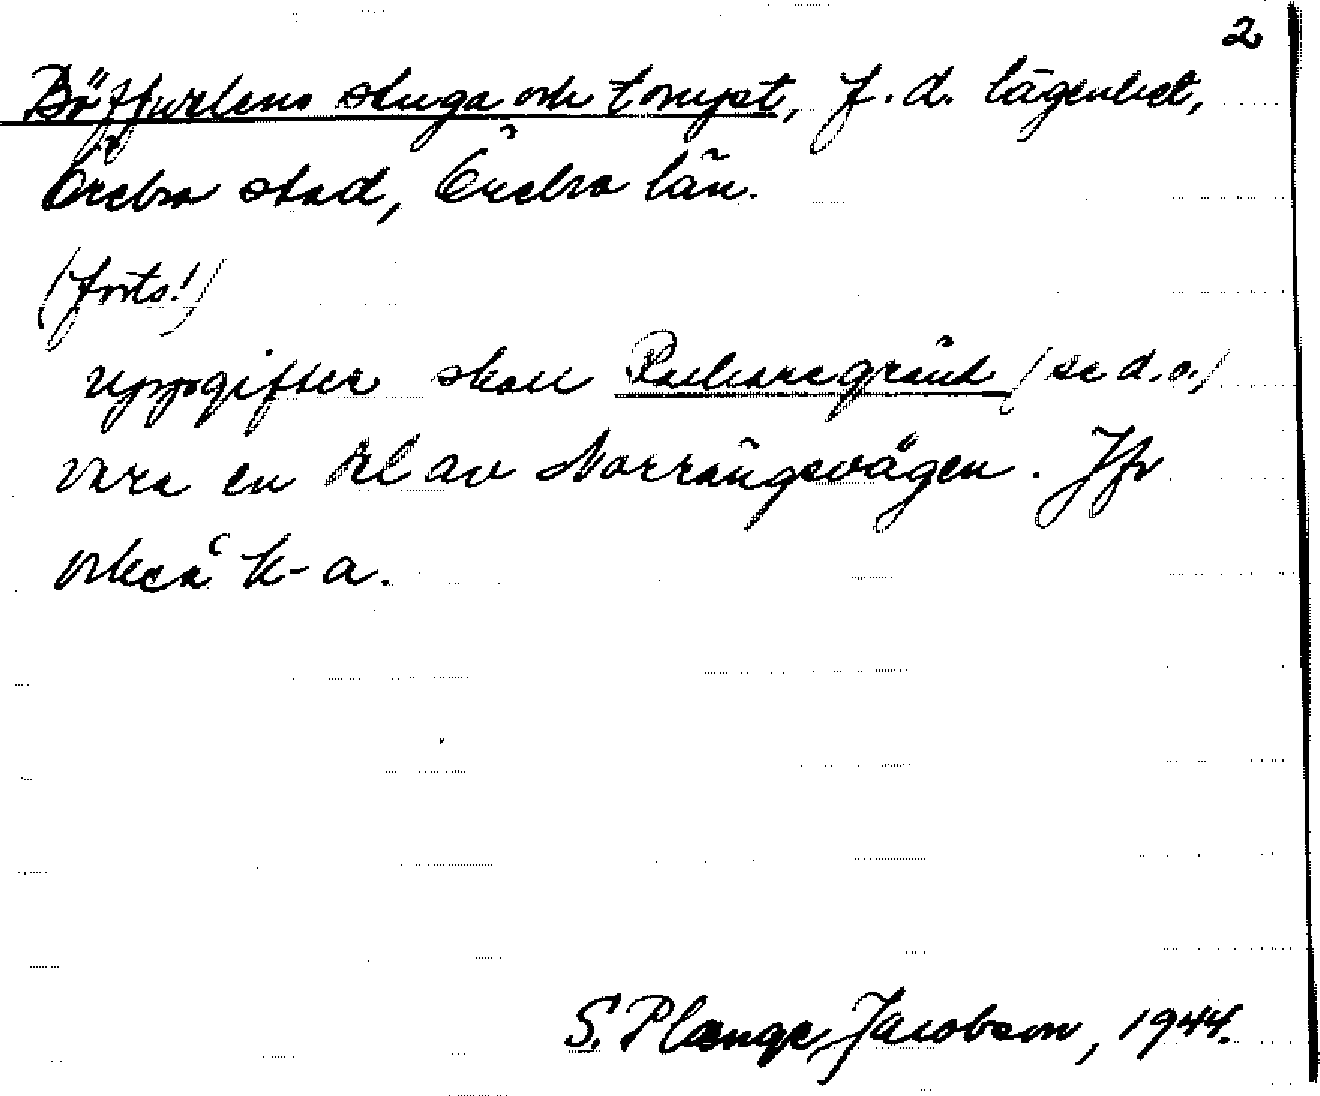 2
Böffurlens stuga och tomt, f.d. lägenhet,
Örebro stad, Örebro län.
(forts!)
uppgifter skall (se d.o.)
vara en del av Norrängsvägen. Jfr
också k-a.
S. Plænge Jacobson, 1944.